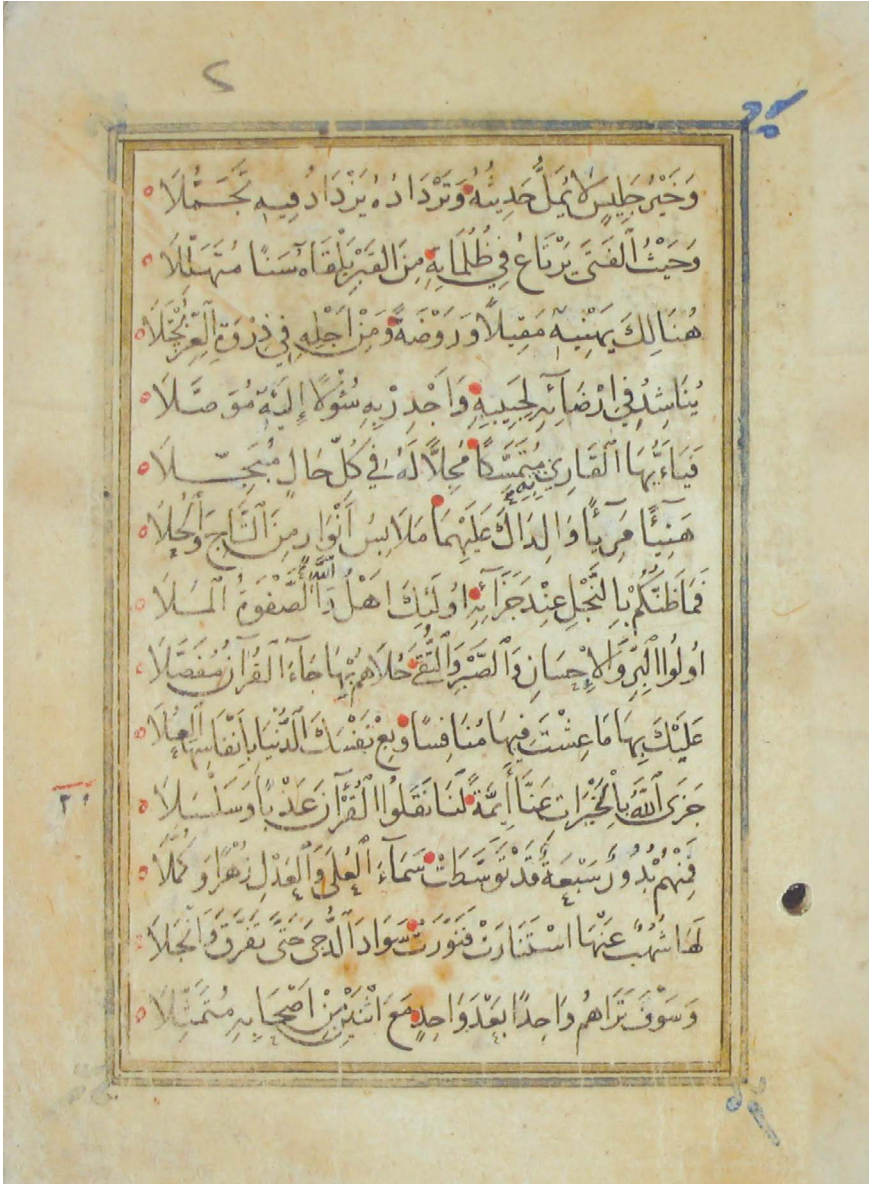 ٢
وَخَيْرُ جَلِيسٍ لَا يُمَلُّ حَدِيثُهُ وَتَرْدَادُهُ يَزْدَادُ فِيهِ تَجَمُّلَا
وَحَيْثُ ٱلْفَتَى يَرْتَاعُ فِي ظُلُمَاتِهِ مِنَ القَبْرِ يَلْقَاهُ سَنًا مُتَهَلِّلَا
هُنَالِكَ يَهْنِيهِ مَقِيلًا وَرَوْضَةً وَمِنْ اَجْلِهِ فِي ذِرْوَةِ ٱلْعِزِّ يُجْتَلَا
يُنَاشِدُ فِي اِرْضَآئِهِ لِحَبِيبِهِ وَاَجْدِرْ بِهِ سُؤْلًا إِلَيْهِ مُوَصَّلَا
فَيَاءَيُّهَا ٱلْقَارِي بِهِ مُتَمَسِّكًا مُجِلًّا لَهُ فِي كُلِّ حَالٍ مُبَجِّلَا
هَنِيٓئًا مَرِيٓئًا وَالِدَاكَ عَلَيْهِمَا مَلَابِسُ أَنْوَارٍ مِنَ ٱلتَّاجِ وَٱلْحُلَا
فَمَا ظَنُّكُمْ بِالنَّجْلِ عِنْدَ جَزَآئِهِ اُولَئِكَ اَهْلُ ٱللَّهِ وَالصَّفْوَةُ ٱلْمَلَا
اُولُوا ٱلْبِرِّ وَٱلْاِحْسَانِ وَٱلصَّبْرِ وَٱلتُّقَى حُلَاهُمْ بِهَا جَآءَ ٱلْقُرْآنُ مُفَصَّلَا
عَلَيْكَ بِهَا مَا عِشْتَ فِيهَا مُنَافِسًا وَبِعْ نَفْسَكَ ٱلدُّنْيَا بِاَنْفَاسِهَا ٱلْعُلَا
جَزَى ٱللَّهُ بِالْخَيْرَاتِ عَنَّا أَئِمَّةً لَنَا نَقَلُوا ٱلْقُرْآنَ عَذْبًا وَسَلْسَلَا
فَمِنْهُمْ بُدُورٌ سَبْعَةٌ قَدْ تَوَسَّطَتْ سَمَآءَ ٱلْعُلَى وَٱلْعَدْلِ زُهْرًا وَكُمَّلَا
لَهَا شُهُبٌ عَنْهَا اسْتَنَارَتْ فَنَوَّرَتْ سَوَادَ ٱلدُّجَى حَتَّى تَفَرَّقَ وَٱنْجَلَا
وَسَوْفَ تَرَاهُمْ وَاحِدًا بَعْدَ وَاحِدٍ مَعَ اثْنَيْنِ مِنْ اَصْحَابِهِ مُتَمَثِّلَا